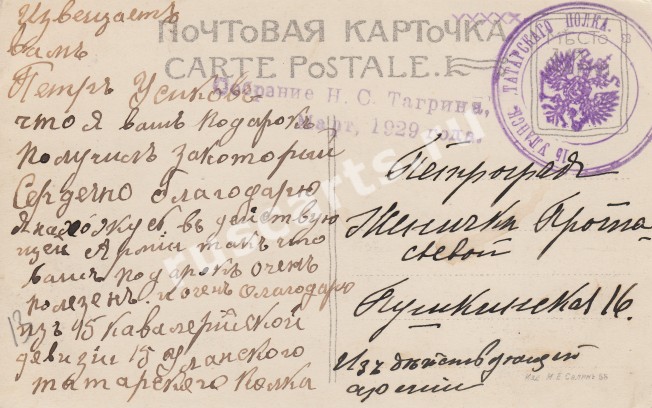 Извещаетъ
вамъ
Петръ Усиковъ
что я вашъ подарокъ
получилъ закоторий
Сердечно благодарю
въ действую
щей Армии такъ что
вашъ подарокъ очень
полезенъ. и очень благодарю
изъ 15 Кавалерийской
девизи 15 Уланского
татарского Полка
ПОЧТОВАЯ КАРТОЧКА
CARTE POSTALE.
Собрание Н. С. Тагрина,
Март, 1929 года.
УЛАНСК. ТАТАРСКАГО ПОЛКА.
МѢСТО
Петроградъ
Женичка Прота
сьевой
Пушкинская 16.
Изъ действующей
армии
13
ruscarts.ru